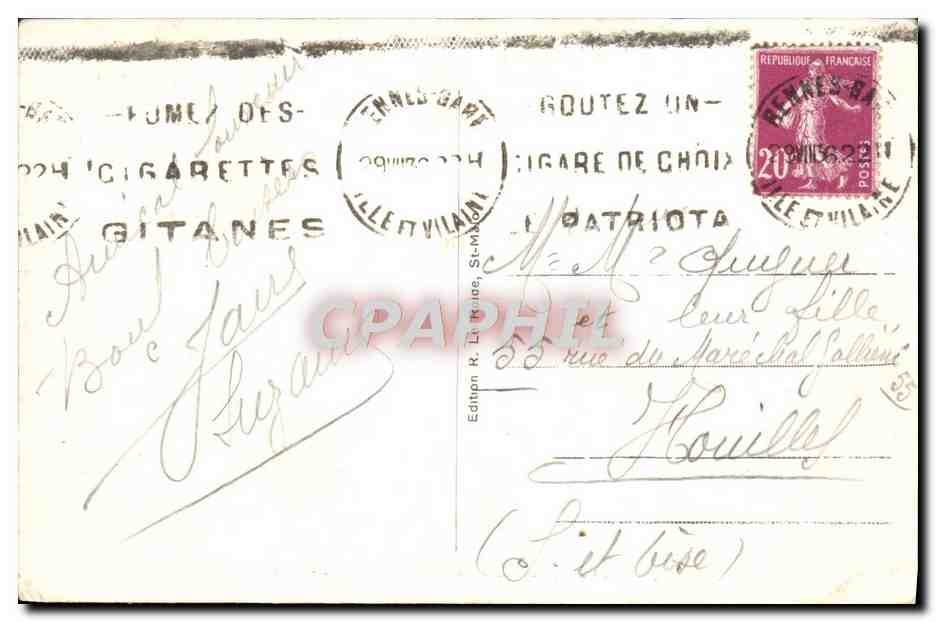 RENNES-GARE
29 VIII 36 22H
ILLE ET VILAINE
FUMEZ DES
CIGARETTES
GITANES
GOUTEZ UN
CIGARE DE CHOIX
PATRIOTA
REPUBLIQUE FRANÇAISE
20
POSTES
RENNES-GARE
ILLE ET VILAINE
Amical Souvenir
Bons baisers
Suzanne
Edition R. Le Roide, St-Malo
Mr Me
et leur fille
55 rue du Maréchal Galliéni
55
Houilles
(S. et Oise)
CPAPHIL